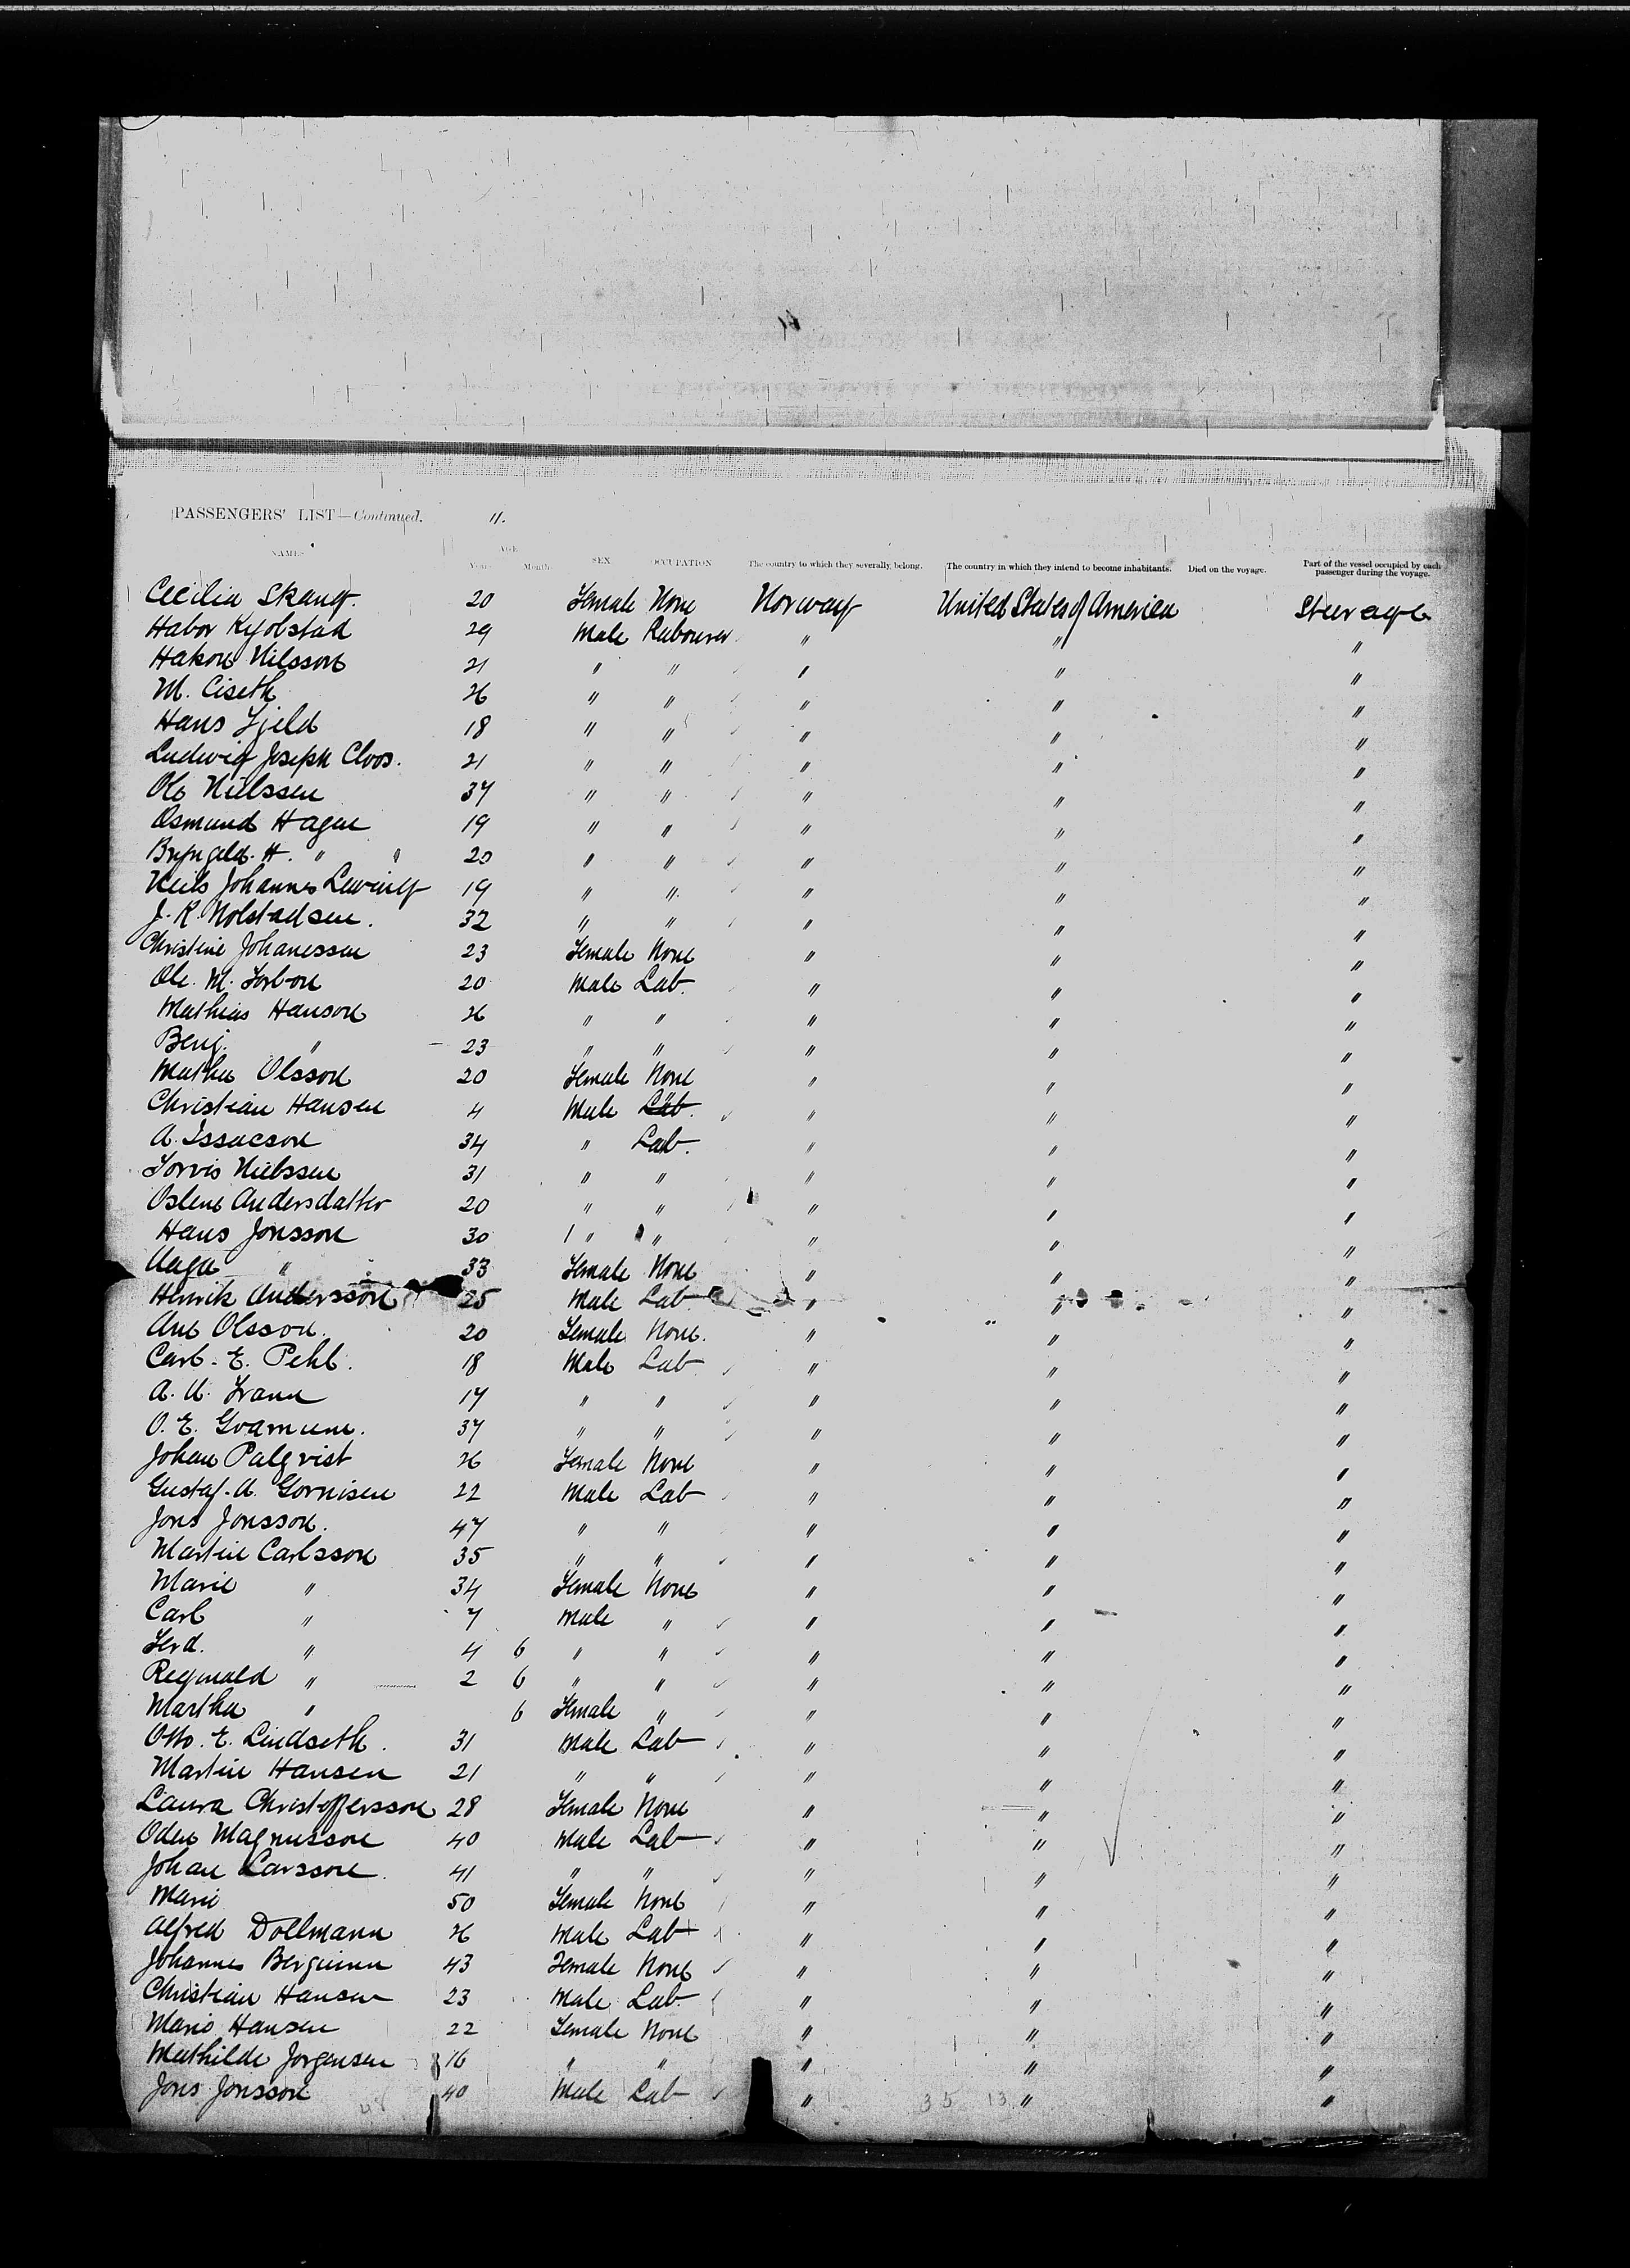 PASSENGERS' LIST—Continued. 11.
NAMES AGE SEX OCCUPATION The country to which they severally belong. The country in which they intend to become inhabitants. Died on the voyage. Part of the vessel occupied by each passenger during the voyage.
Years Month
Cecilia Skaug. 20 Female None Norway United States of America Steerage
Habor Kjolstad 29 Male Labourer " " "
Hakon Nilsson 21 " " " " "
M. Ciseth 26 " " " " "
Hans Fjeld 18 " " " " "
Ludwig Joseph Cloos. 21 " " " " "
Ole Nielssen 37 " " " " "
Osmund Hagen 19 " " " " "
Bryngeld. H. " " 20 " " " " "
Neils Johannes 19 " " " " "
J. K. Molstadsen. 32 " " " " "
Christine Johanessen 23 Female None " " "
Ole. M. Torbon 20 Male Lab. " " "
Mathias Hanson 26 " " " " "
Benj. " 23 " " " " "
Mathea Olsson 20 Female None " " "
Christian Hansen 4 Male Lab. " " "
A. Issacson 34 " Lab. " " "
Nielssen 31 " " " " "
Oslene Andersdatter 20 " " " " "
Hans Jonsson 30 " " " " "
" 33 Female None " " "
Henrik Andersson 25 Male Lab " " "
Ane Olsson. 20 Female None. " " "
Carl. E. Pehl. 18 Male Lab " " "
A. U. 17 " " " " "
O. E. 37 " " " " "
Johan Palqvist 26 Female None " " "
Gustaf. A. Gornisen 22 Male Lab " " "
Jons Jonsson. 47 " " " " "
Martin Carlsson 35 " " " " "
Marie " 34 Female None " " "
Carl " 7 Male " " " "
Ferd. " 4 6 " " " " "
Reginald " 2 6 " " " " "
Martha " 6 Female " " " "
Otto. E. Lindseth. 31 Male Lab " " "
Martin Hansen 21 " " " " "
Laura Christoffersson 28 Female None " " "
Oden Magnusson 40 Male Lab " " "
Johan Larsson. 41 " " " " "
Marie 50 Female None " " "
Alfred Dollmann 26 Male Lab " " "
Johannes 43 Female None " " "
Christian Hansen 23 Male Lab. " " "
Marie Hansen 22 Female None " " "
Mathilde Jorgensen 16 " " " " "
Jons Jonsson 40 Male Lab " " "
48 35 13